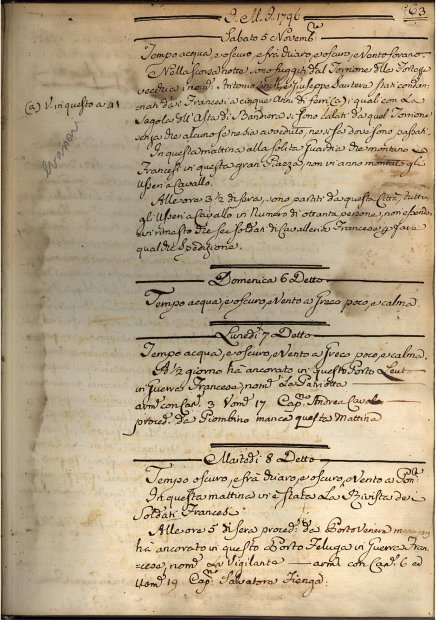 I. M. I. 1796
63
Sabato 5 Novemb.e
Tempo acqua, e oscuro, e frà chiaro, e oscuro, e Vento
Nella scorsa notte sono fuggiti dal Torrione della Fortezza
vecchia i nom.i Antonio e Giuseppe stati condan-
nati da Francesi a cinque Anni di ferri (a) i quali con La
Sagola dell'Asta di Bandiera si sono calati da quel Torrione
senza che alcuno se ne sia avveduto, ne si sà dove sono passati.
(a) V. in questo a 41
In questa mattina alla solita Guardia che montano i
Francesi in questa gran Piazza non vi anno montato gli
Usseri a Cavallo.
Alle ore 3 1/2 di sera, sono partiti da questa Città tutti
gli Usseri a Cavallo in Numero di ottanta persone, non essendo-
vi rimasto che sei Soldati di Cavalleria Francese p. fare
qualche Spedizione.
Domenica 6 Detto
Tempo acqua, e oscuro, e Vento a Greco poco, e calma
Lunedì 7 Detto
Tempo acqua, e oscuro, e Vento a Greco poco, e calma.
A 1/2 giorno hà ancorato in questo Porto Leuto
in Guerra Francese, nom.o La Patriotta
arm. con Can. 3 Uom.i 17 Cap.no Andrea
proced.e da Piombino manca questa Mattina
Martedì 8 Detto
Tempo oscuro, e frà chiaro, e oscuro, e Vento a Pon.te
In questa mattina vi è stata La Rivista de
Soldati Francesi.
Alle ore 5 di sera proced.e da Porto Venere
hà ancorato in questo Porto Feluga in Guerra Fran-
cese, nom.o La Vigilante arm. con Can. 6 ed
Uom.i 19 Cap.o Salvatore Fienga.